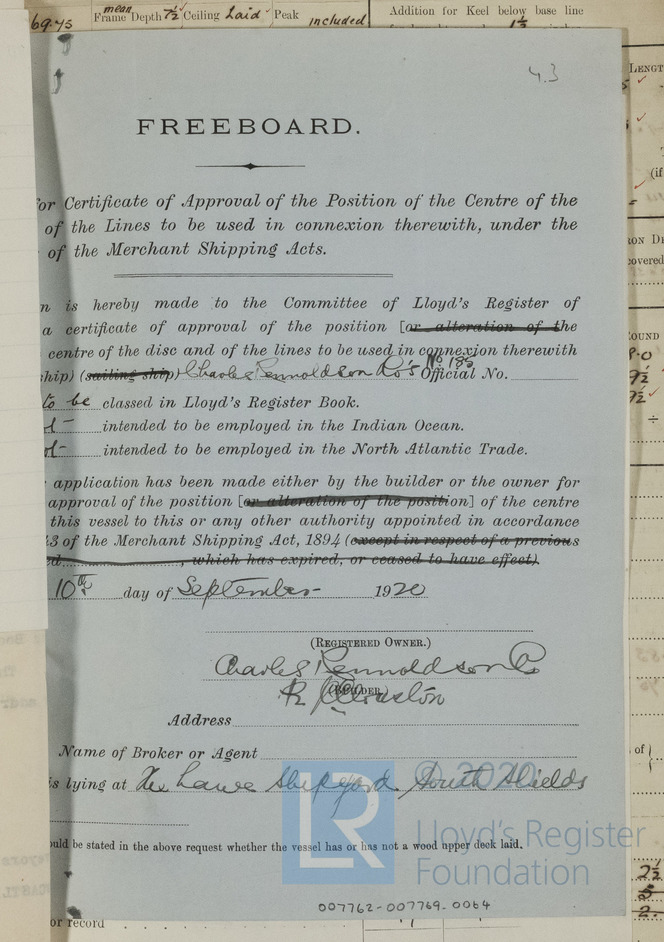 69.75 Frame Depth mean 7½ Ceiling Laid Peak included Addition for Keel below base line
1½
4.3
LENGT
FREEBOARD.
for Certificate of Approval of the Position of the Centre of the
of the Lines to be used in connexion therewith, under the
of the Merchant Shipping Acts.
n is hereby made to the Committee of Lloyd's Register of
a certificate of approval of the position [or alteration of the
centre of the disc and of the lines to be used in connexion therewith
ship) (sailing ship) Charles Rennoldson & Co's No 185 Official No.
to be classed in Lloyd's Register Book.
ot intended to be employed in the Indian Ocean.
ot intended to be employed in the North Atlantic Trade.
application has been made either by the builder or the owner for
approval of the position [or alteration of the position] of the centre
this vessel to this or any other authority appointed in accordance
43 of the Merchant Shipping Act, 1894 (except in respect of a previous
d , which has expired, or ceased to have effect).
10th day of September 1920
(REGISTERED OWNER.)
Charles Rennoldson & Co
(BUILDER.)
Address
Name of Broker or Agent
is lying at The Lawe Shipyard South Shields
ould be stated in the above request whether the vessel has or has not a wood upper deck laid.
© 2020
LR
Lloyd's Register
Foundation
007762-007769-0064
or record